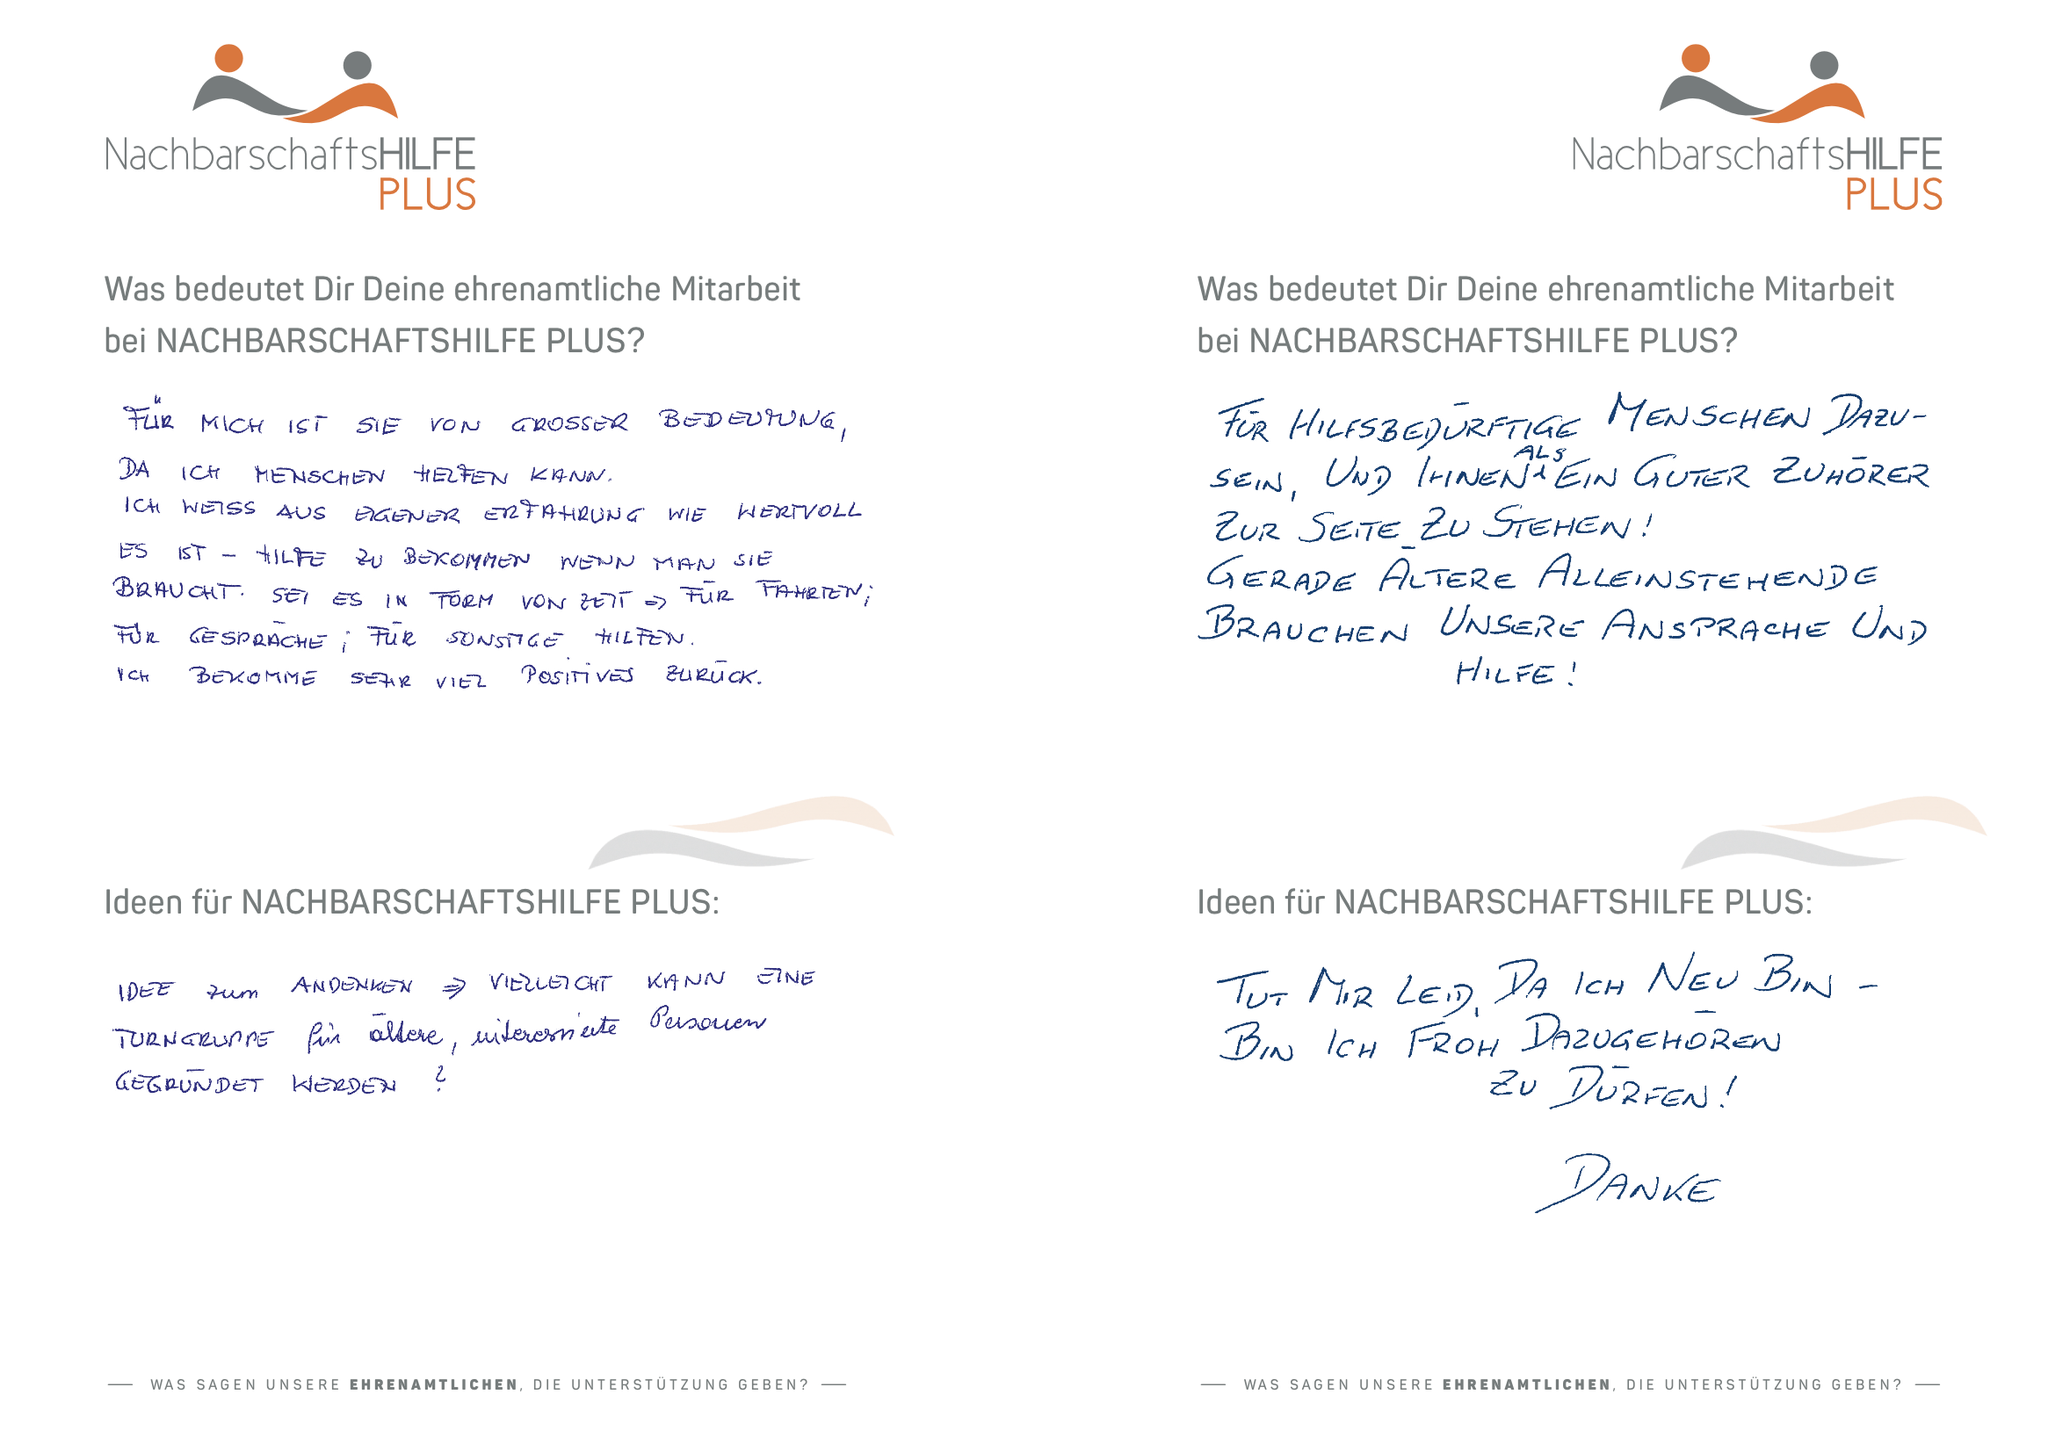 NachbarschaftsHILFE
PLUS
Was bedeutet Dir Deine ehrenamtliche Mitarbeit
bei NACHBARSCHAFTSHILFE PLUS?
FÜR MICH IST SIE VON GROSSER BEDEUTUNG,
DA ICH MENSCHEN HELFEN KANN.
ICH WEISS AUS EIGENER ERFAHRUNG WIE WERTVOLL
ES IST – HILFE ZU BEKOMMEN WENN MAN SIE
BRAUCHT. SEI ES IN FORM VON ZEIT ⇒ FÜR FAHRTEN;
FÜR GESPRÄCHE; FÜR SONSTIGE HILFEN.
ICH BEKOMME SEHR VIEL POSITIVES ZURÜCK.
Ideen für NACHBARSCHAFTSHILFE PLUS:
IDEE zum ANDENKEN ⇒ VIELLEICHT KANN EINE
TURNGRUPPE für ältere, interessierte Personen
GEGRÜNDET WERDEN?
— WAS SAGEN UNSERE EHRENAMTLICHEN, DIE UNTERSTÜTZUNG GEBEN? —
NachbarschaftsHILFE
PLUS
Was bedeutet Dir Deine ehrenamtliche Mitarbeit
bei NACHBARSCHAFTSHILFE PLUS?
FÜR HILFSBEDÜRFTIGE MENSCHEN DAZU-
SEIN, UND IHNEN ALS EIN GUTER ZUHÖRER
ZUR SEITE ZU STEHEN!
GERADE ÄLTERE ALLEINSTEHENDE
BRAUCHEN UNSERE ANSPRACHE UND
HILFE!
Ideen für NACHBARSCHAFTSHILFE PLUS:
TUT MIR LEID, DA ICH NEU BIN –
BIN ICH FROH DAZUGEHÖREN
ZU DÜRFEN!
DANKE
— WAS SAGEN UNSERE EHRENAMTLICHEN, DIE UNTERSTÜTZUNG GEBEN? —